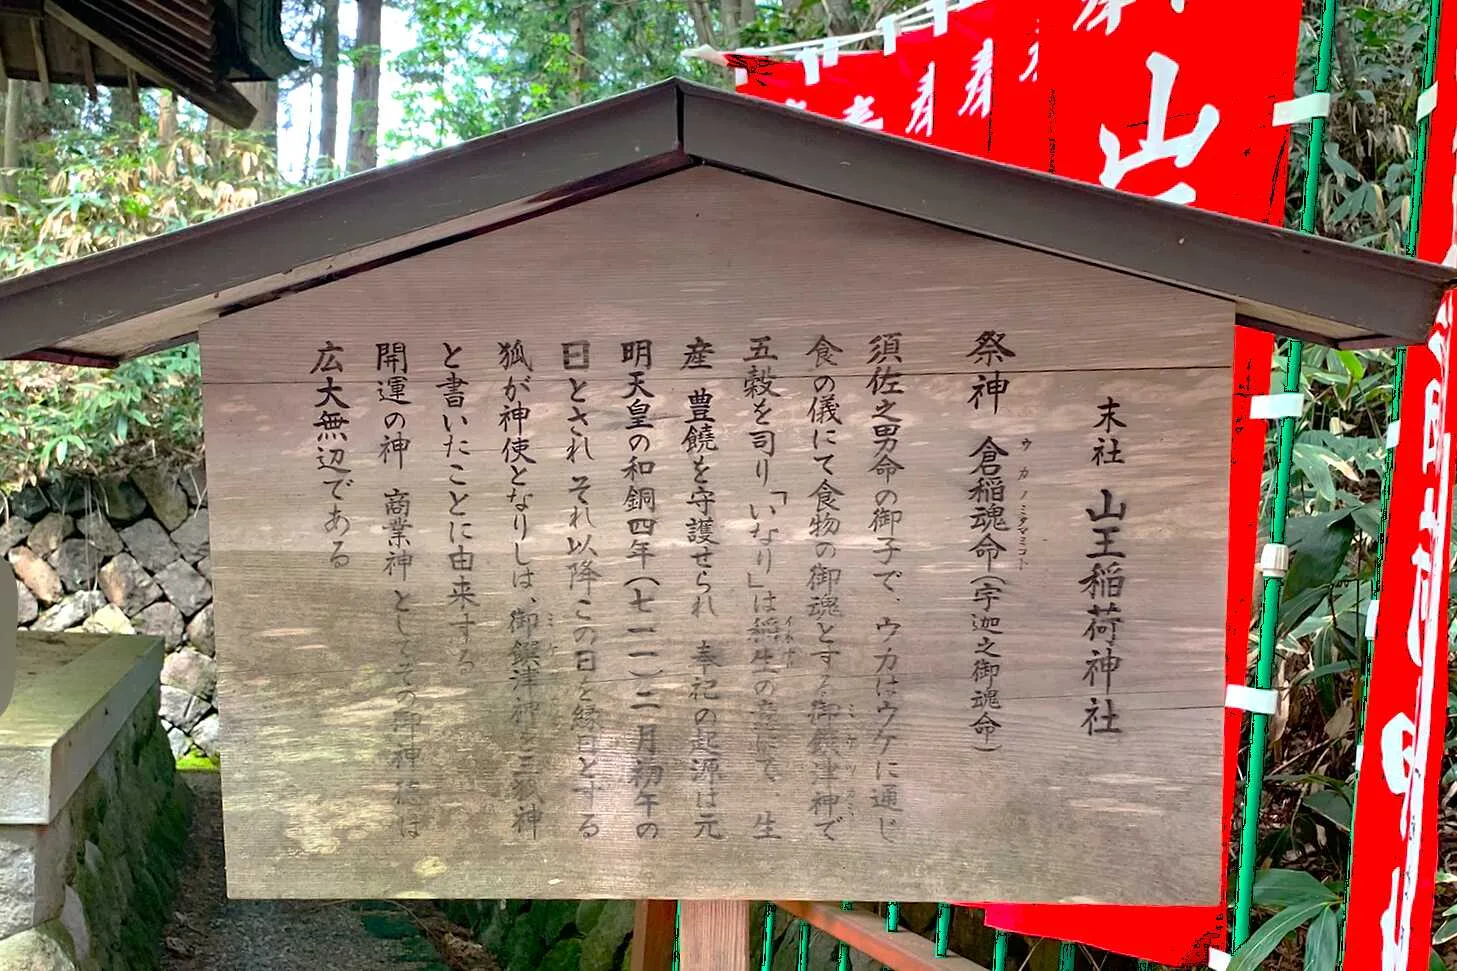 末社 山王稲荷神社
祭神 倉稲魂命(宇迦之御魂命)
ウカノミタマミコト
須佐之男命の御子で、ウカはウケに通じ
食の儀にて食物の御魂とする御饌津神で
ミケツカミ
五穀を司り「いなり」は稲生の意にて、生
イネナリ
産 豊饒を守護せられ 奉祀の起源は元
明天皇の和銅四年(七一一)二月初午の
日とされ それ以降この日を縁日とする
狐が神使となりしは、御饌津神を三狐神
ミケ
と書いたことに由来する
開運の神 商業神としその御神徳は
広大無辺である
山